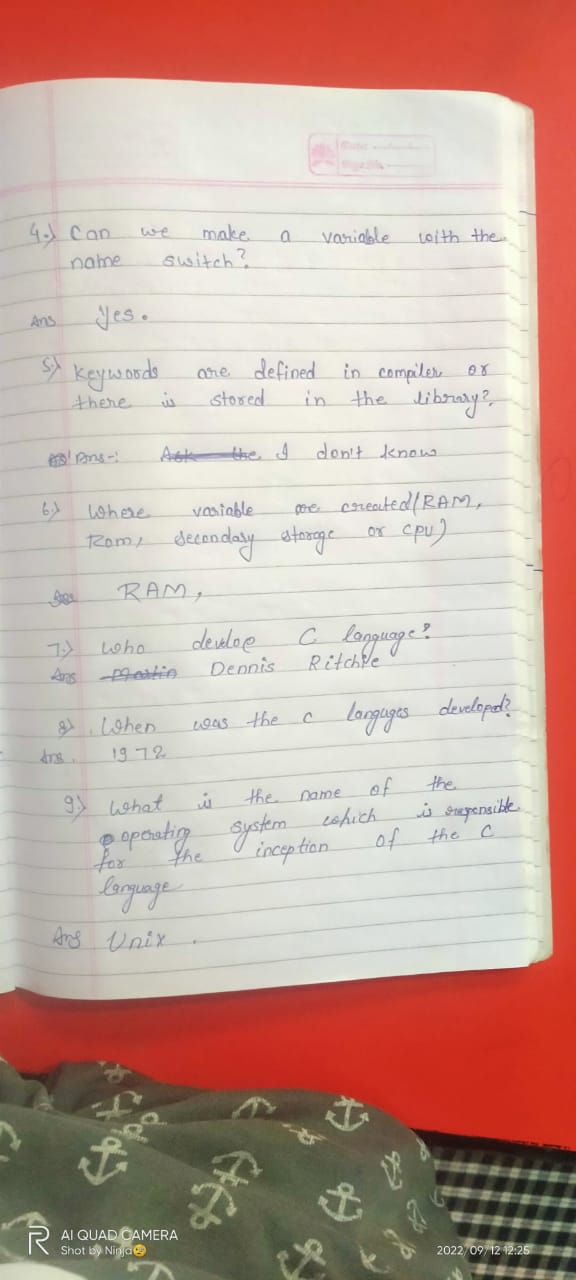 4.) Can we make a variable with the
name switch?
Ans Yes.
5.) Keywords are defined in compiler or
there is stored in the library?
Ans-: I don't know
6.) Where variable are created (RAM,
Rom, secondary storage or CPU)
RAM,
7.) Who develop C language?
Ans Martin Dennis Ritchie
8) When was the C languges developed?
Ans. 1972
9.) What is the name of the
operating system which is responsible
for the inception of the C
language
Ans Unix.
AI QUAD CAMERA
Shot by Ninja😉
2022/09/12 12:25